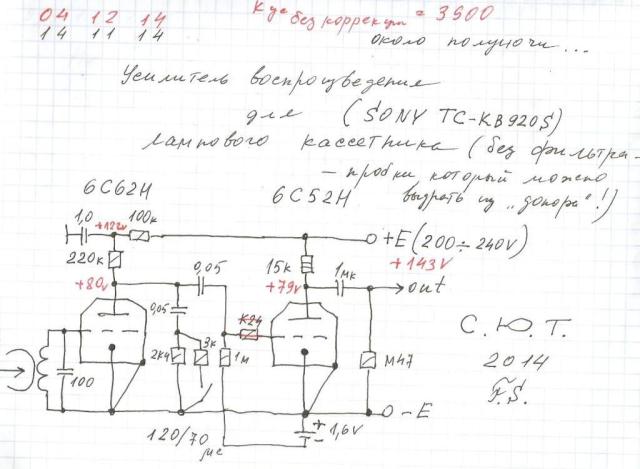 04 12 14
14 11 14
Кус без коррекции = 3500
около полуночи...
Усилитель воспроизведения
для (SONY TC-KB920S)
лампового кассетника (без фильтра-
- пробки который можно
выдрать из "донора"!)
6С62Н
6С52Н
1,0
+122v
100к
+E (200÷240V)
+143v
220к
+80v
0,05
15к
+79v
1мк
out
0,05
К24
2К4
3к
1м
100
М47
-E
+
-
1,6V
120/70
мс
С.Ю.Т.
2014
F.S.